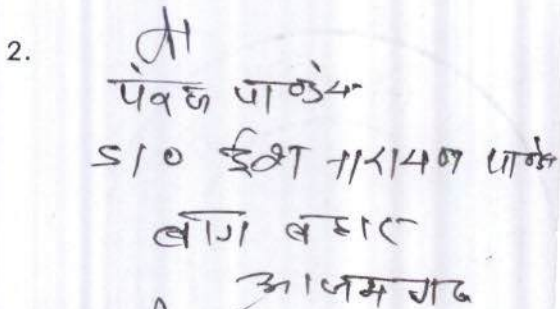 2.
पंकज पाण्डेय
S/O ईश नारायण पाण्डेय
बाग बहार
आजमगढ